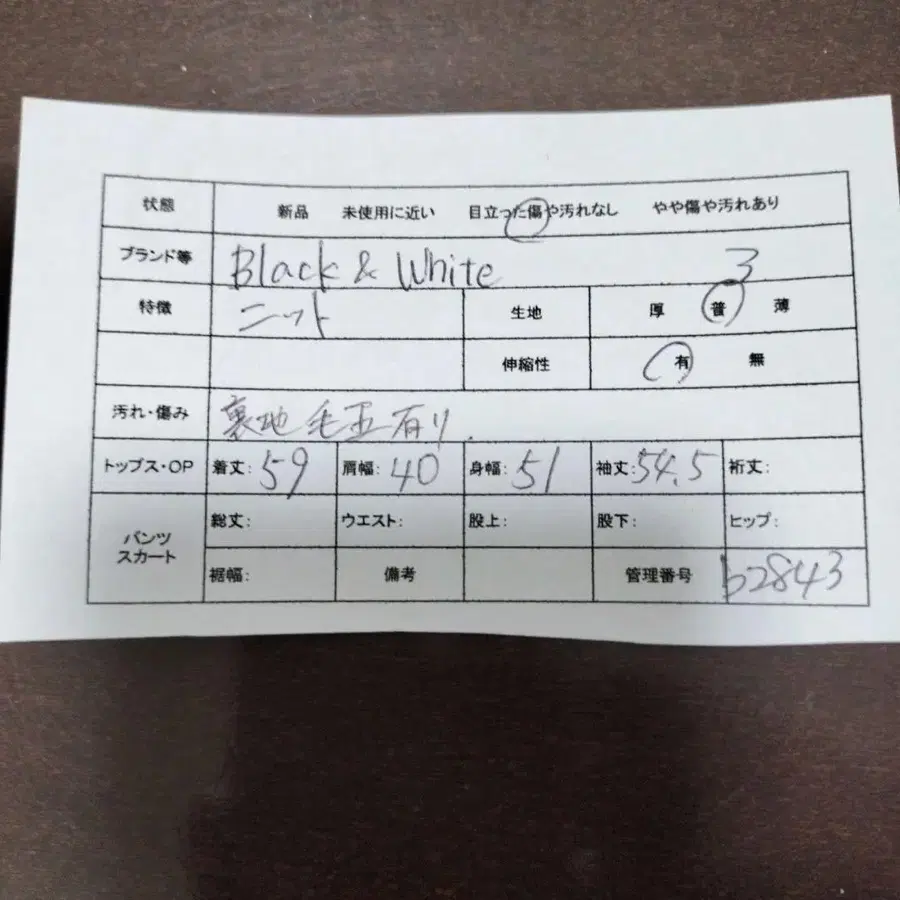 状態 新品 未使用に近い 目立った傷や汚れなし やや傷や汚れあり
ブランド等 Black & White 3
特徴 ニット 生地 厚 普 薄
伸縮性 有 無
汚れ・傷み 裏地毛玉有り.
トップス・OP 着丈:59 肩幅:40 身幅:51 袖丈:54.5 裄丈:
パンツ スカート 総丈: ウエスト: 股上: 股下: ヒップ:
裾幅: 備考 管理番号 b2843